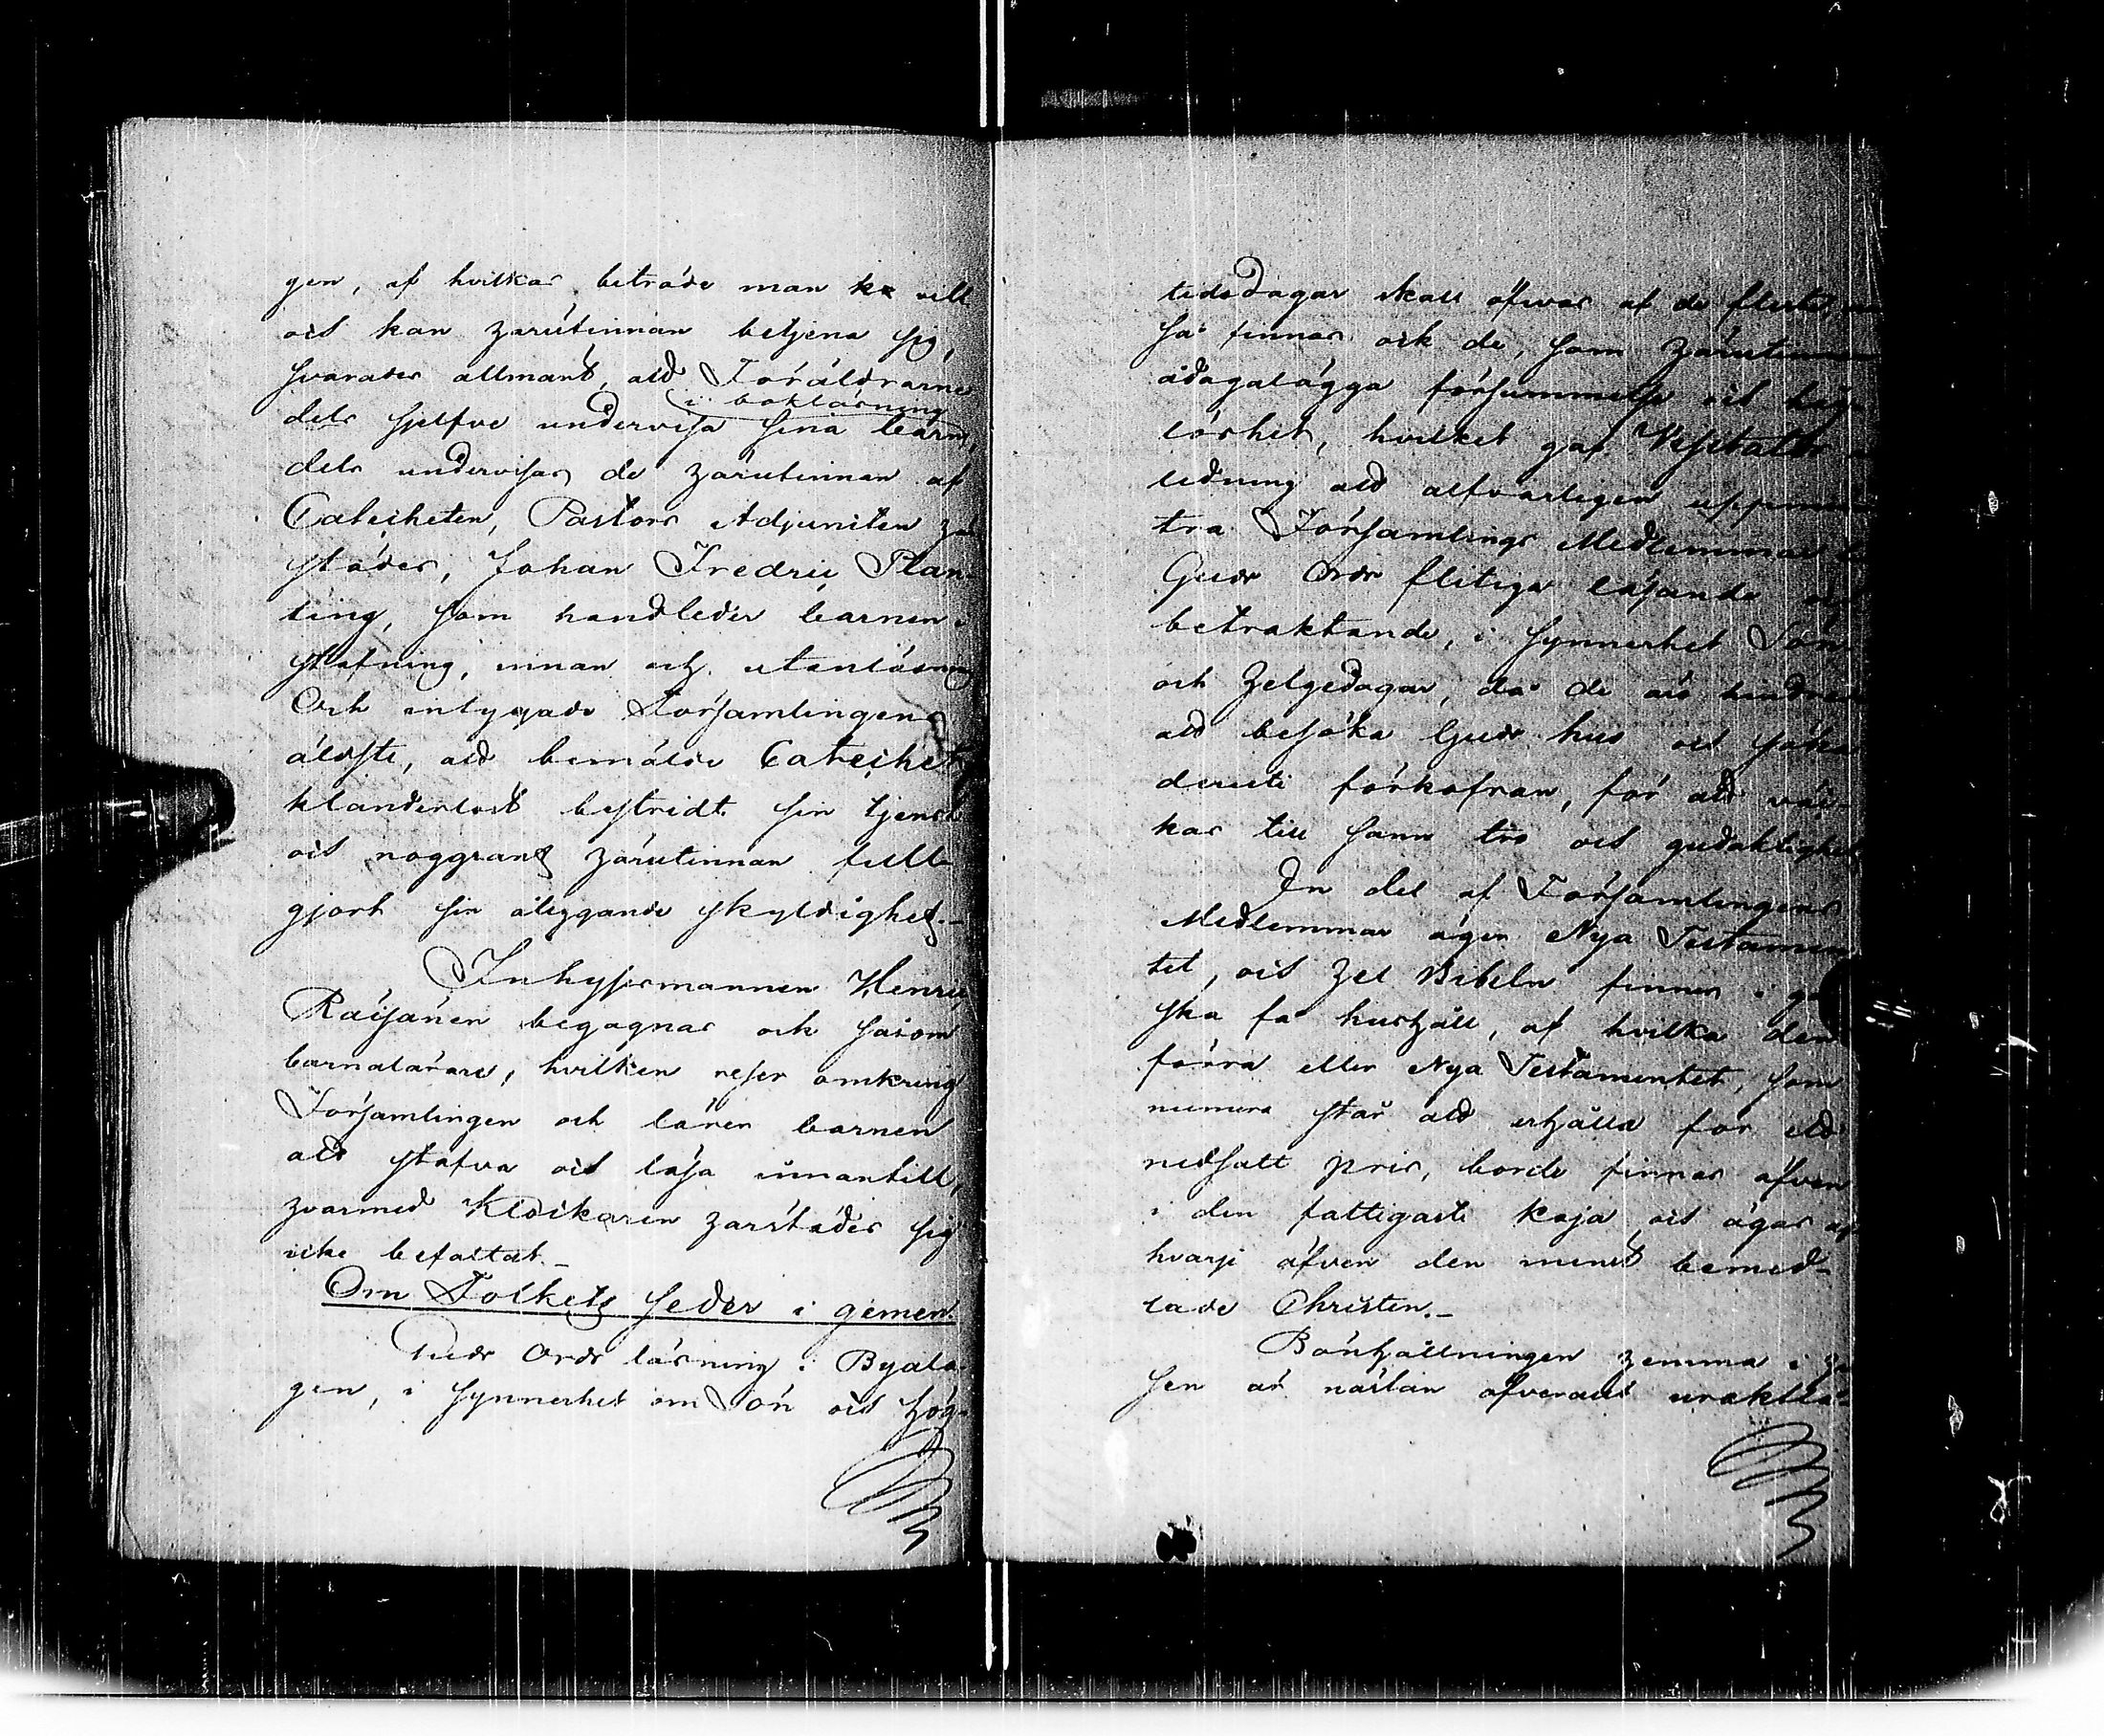 gen, af hvilkas biträde man ke vill
och kan härutinnan betjena sig,
svarades allmänt, att Föräldrarne
i boklärning
dels sjelfve undervisa sina barn,
dels undervisas de härutinnan af
Catecheten, Pastors Adjuncten här
städes, Johan Fredric Plan-
ting, som handleder barnen i
stafning, innan och utanläsning
Och intygade Församlingens
äldste, att bemälde Catechet
klanderlöst bestridt sin tjenst
och noggrant härutinnan full-
gjort sin åliggande skyldighet.
Inhysesmannen Henric
Räisänen begagnas och såsom
barnalärare, hvilken reser omkring
Församlingen och lärer barnen
att stafva och läsa innantill,
hvarmed Klockaren härstädes sig
icke befattat.
Om Folkets seder i gemen.
Guds Ords läsning i Byala-
gen, i synnerhet om Sön och Hög-
tidsdagar skall öfvas af de fleste,
så finnas ock de, som härutinnan
ådagalägga försummelse och
löshet, hvilket gaf Visitator
ledning att alfvarligen uppmun-
tra Församlings Medlemmar
Guds Ords flitiga läsande och
betraktande, i synnerhet Sön
och Helgedagar, då de äro hindrade
att besöka Guds hus och söka
derest förkofran, för att väc-
kas till sann tro och gudaktighet
En del af Församlingens
Medlemmar äger Nya Testamen-
tet, och Hel Bibeln finnes i gan-
ska få hushåll, af hvilka den
förra eller Nya Testamentet, som
numera står att erhålla för ett
nedsatt pris, borde finnas äfven
i den fattigaste koja och ägas af
hvarje äfven den minst bemed-
lade Christen.
Bönhållningen hemma i
sen är nästan öfverallt uraktlå-